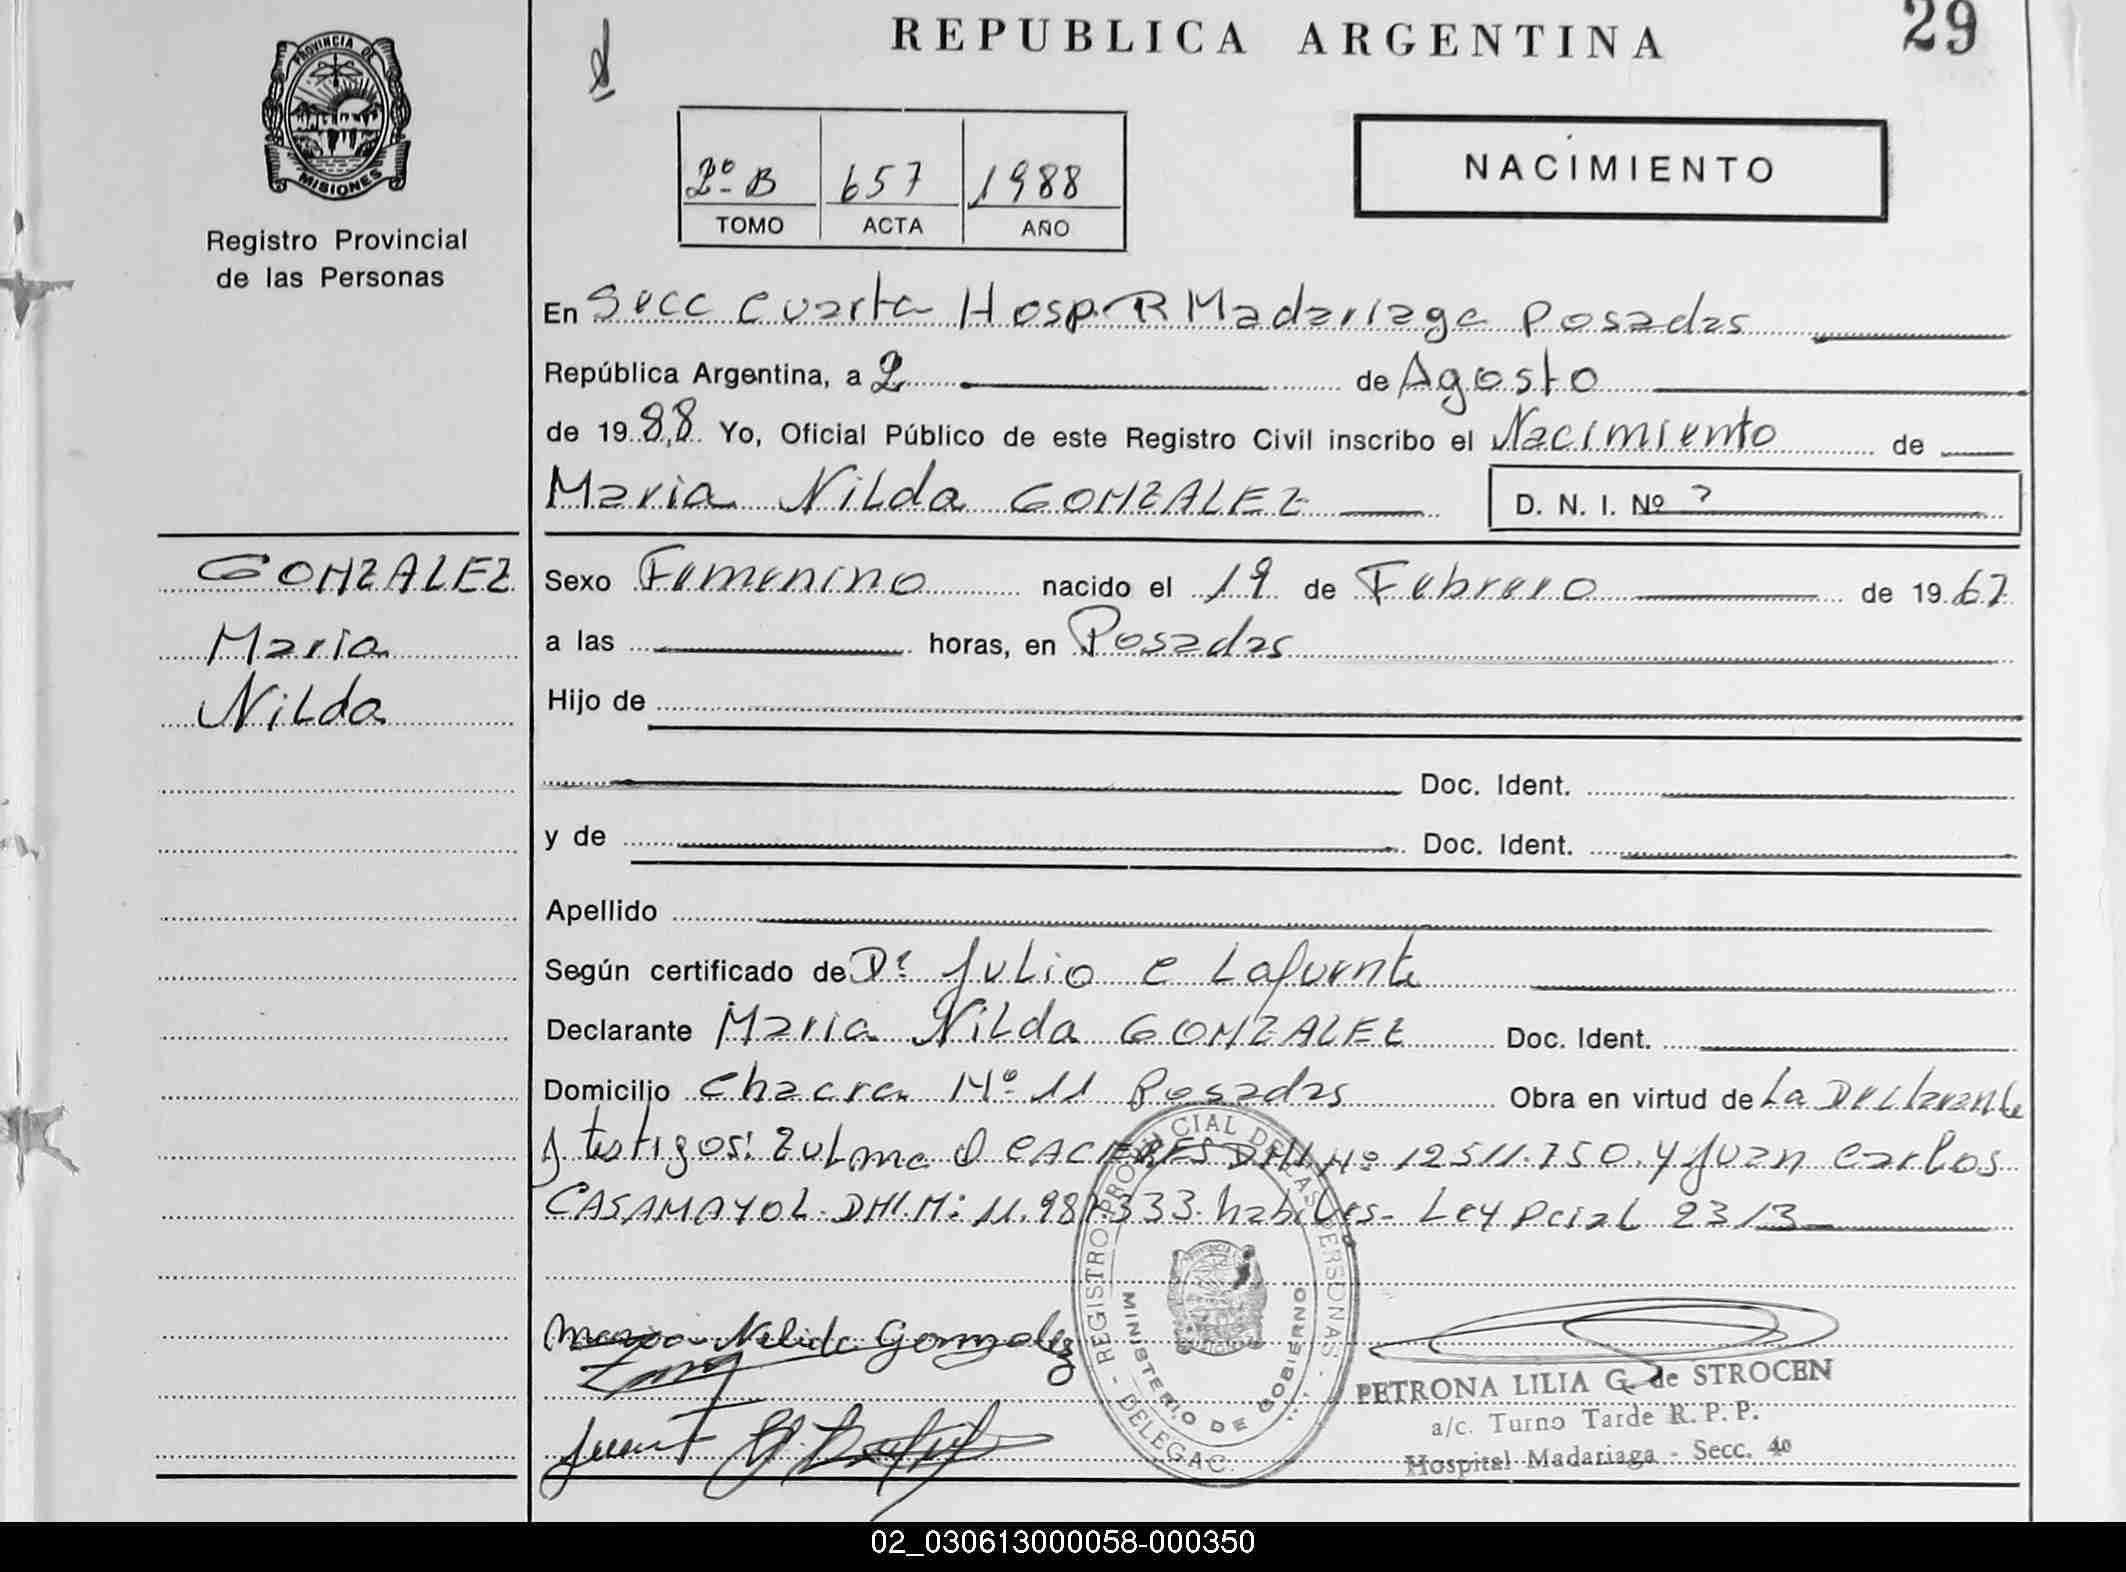 REPUBLICA ARGENTINA
29
PROVINCIA DE
MISIONES
Registro Provincial
de las Personas
2º B 657 1988
TOMO ACTA AÑO
NACIMIENTO
En Secc Cuarta Hosp. R Madariaga Posadas
República Argentina, a 2 de Agosto
de 1988 Yo, Oficial Público de este Registro Civil inscribo el Nacimiento de
Maria Nilda GONZALEZ D. N. I. Nº ?
GONZALEZ
Maria
Nilda
Sexo Femenino nacido el 19 de Febrero de 1967
a las horas, en Posadas
Hijo de
Doc. Ident.
y de Doc. Ident.
Apellido
Según certificado de Dr Julio C Lafuente
Declarante Maria Nilda GONZALEZ Doc. Ident.
Domicilio Chacra Nº 11 Posadas Obra en virtud de La Declarante
y testigos: Zulma CACERES DNI Nº 12511.750. y Juan Carlos
CASAMAYOL. DNI.N: 333. habiles- Ley Pcial 23/3
REGISTRO PROVINCIAL DE LAS PERSONAS - DELEGAC.
MINISTERIO DE GOBIERNO
Maria Nelida Gonzalez
PETRONA LILIA G. de STROCEN
a/c. Turno Tarde R. P. P.
Hospital Madariaga - Secc. 4º
02_030613000058-000350